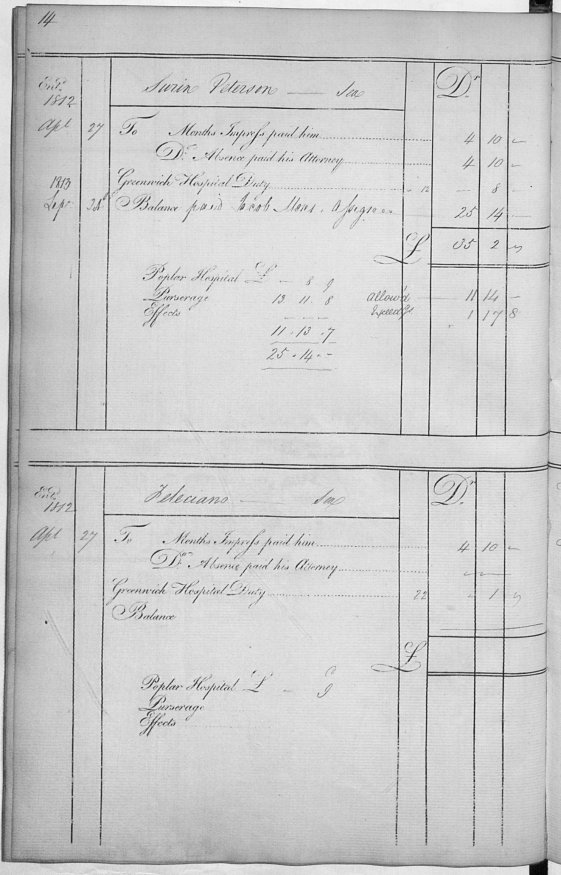 14
Entd.
1812
Peterson — Sea
Dr
Apl 27 To Months Impress paid him 4 10 —
Do. Absence paid his Attorney 4 10 —
1813 Greenwich Hospital Duty 12 — 8 —
Sept Balance paid Jacob 25 14 —
£ 35 2 9
Poplar Hospital £ — 8 9
Purserage 13 11 8 allow'd 11 14 —
Effects 1 17 8
— — —
11 . 13 . 7
25 . 14 . —
Entd.
1812
Feleciano — Sea
Dr
Apl 27 To Months Impress paid him 4 10 —
Do. Absence paid his Attorney — —
Greenwich Hospital Duty 22 - 1 9
Balance
£
Poplar Hospital £ — 9
Purserage
Effects